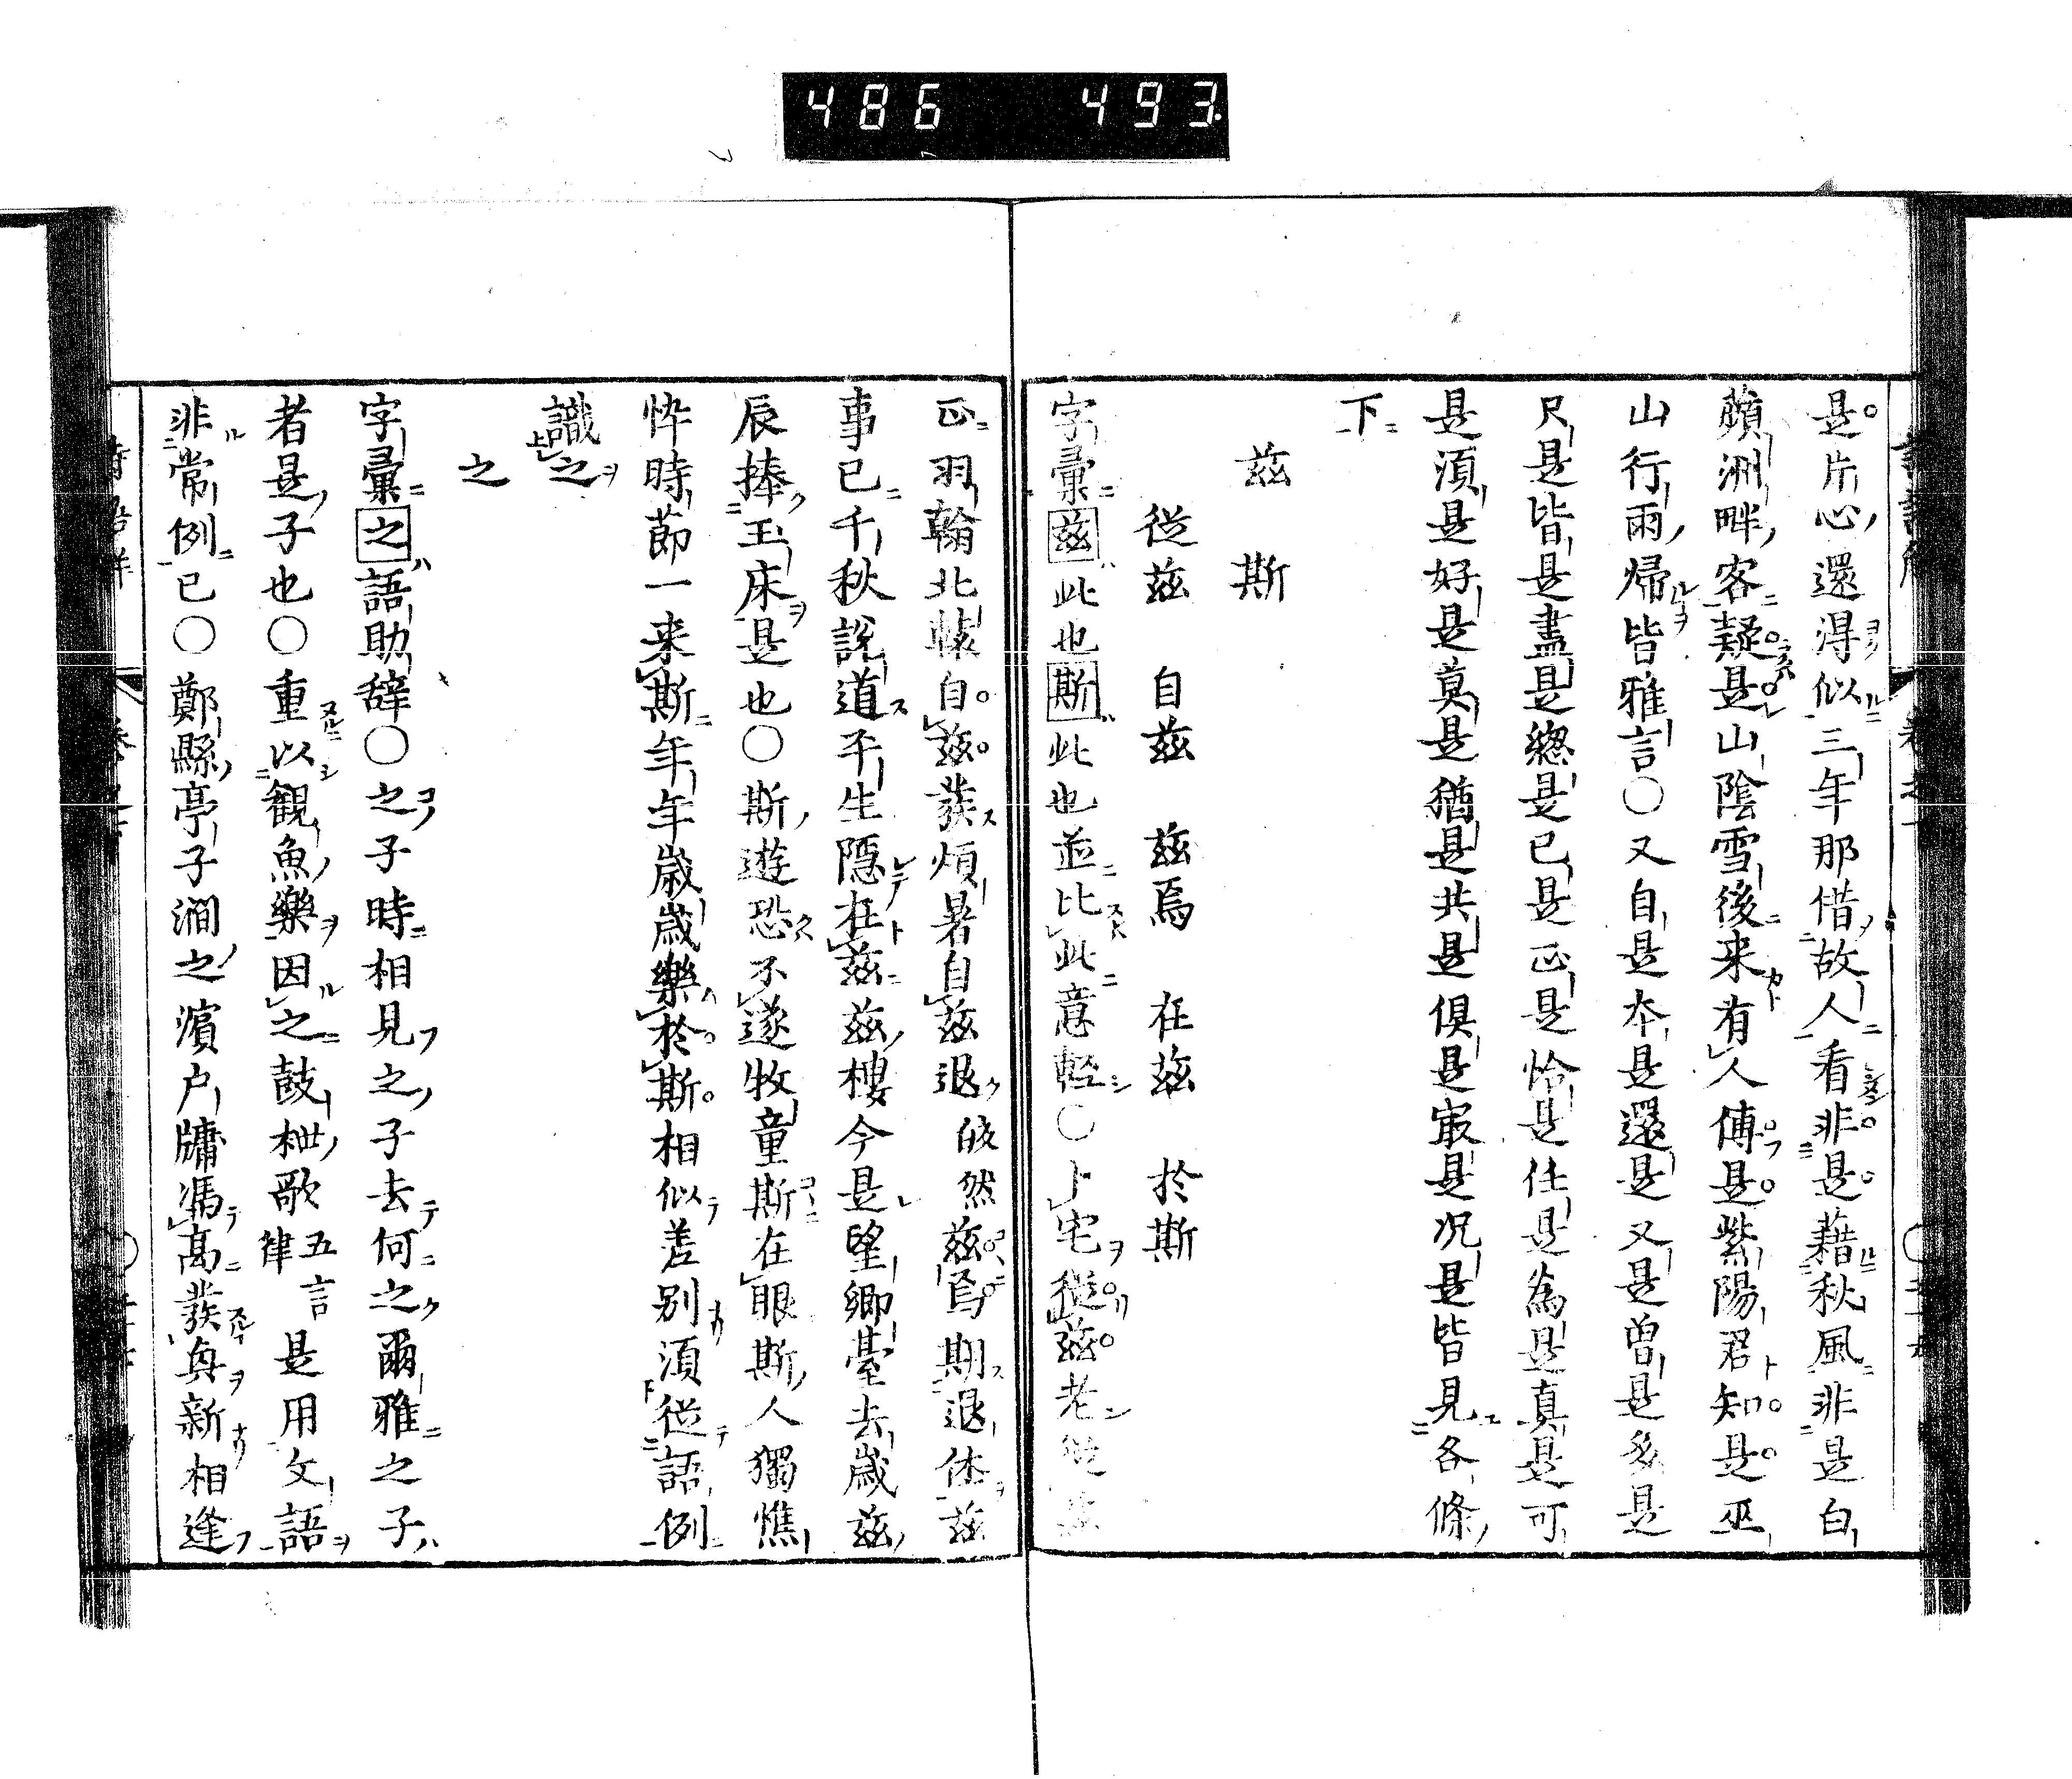 486 493
是片心還得似三年那借故人看非是藉秋風非是白
蘋洲畔客疑是山陰雪後来有人傳是紫陽君知是巫
山行雨帰皆雅言〇又自是本是還是又是曽是多是
尺是皆是盡是總是已是正是恰是仕是為是真是可
是須是好是莫是猶是共是俱是最是况是皆見各條
下
茲 斯
從茲 自茲 茲焉 在茲 於斯
字彙茲此也斯此也並比此意軽〇卜宅從茲老從茲
正羽翰北轅自茲發煩暑自茲退皎然茲焉期退休茲
事已千秋説道平生隠在茲茲樓今是望郷臺去歳茲
辰捧玉床是也〇斯遊恐不遂牧童斯在眼斯人獨憔
悴時節一来斯年年歳歳樂於斯相似差別須從語例
識之
之
字彙之語助辞〇之子時相見之子去何之爾雅之子
者是子也〇重以観魚樂因之鼓枻歌五言律是用文語
非常例已〇鄭縣亭子澗之濱户牖馮高發興新相逢